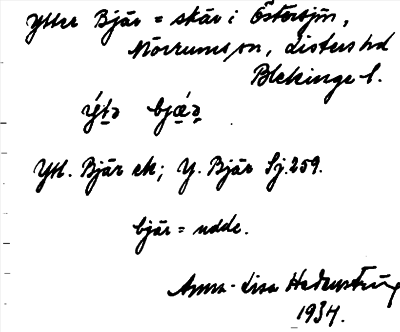 Yttre Bjär = skär i Östersjön,
Mörrums sn, Listers hd
Blekinge l.
ý̄t̠ə bjǽ̠ə̠
Ytt. Bjär ek; Y. Bjär Sj. 259.
bjär = udde.
Anna-Lisa Hedenström
1934.